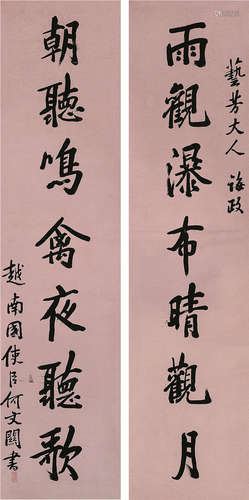 藝芳大人 誨政
雨觀瀑布晴觀月
朝聽鳴禽夜聽歌
越南國使臣何文關書